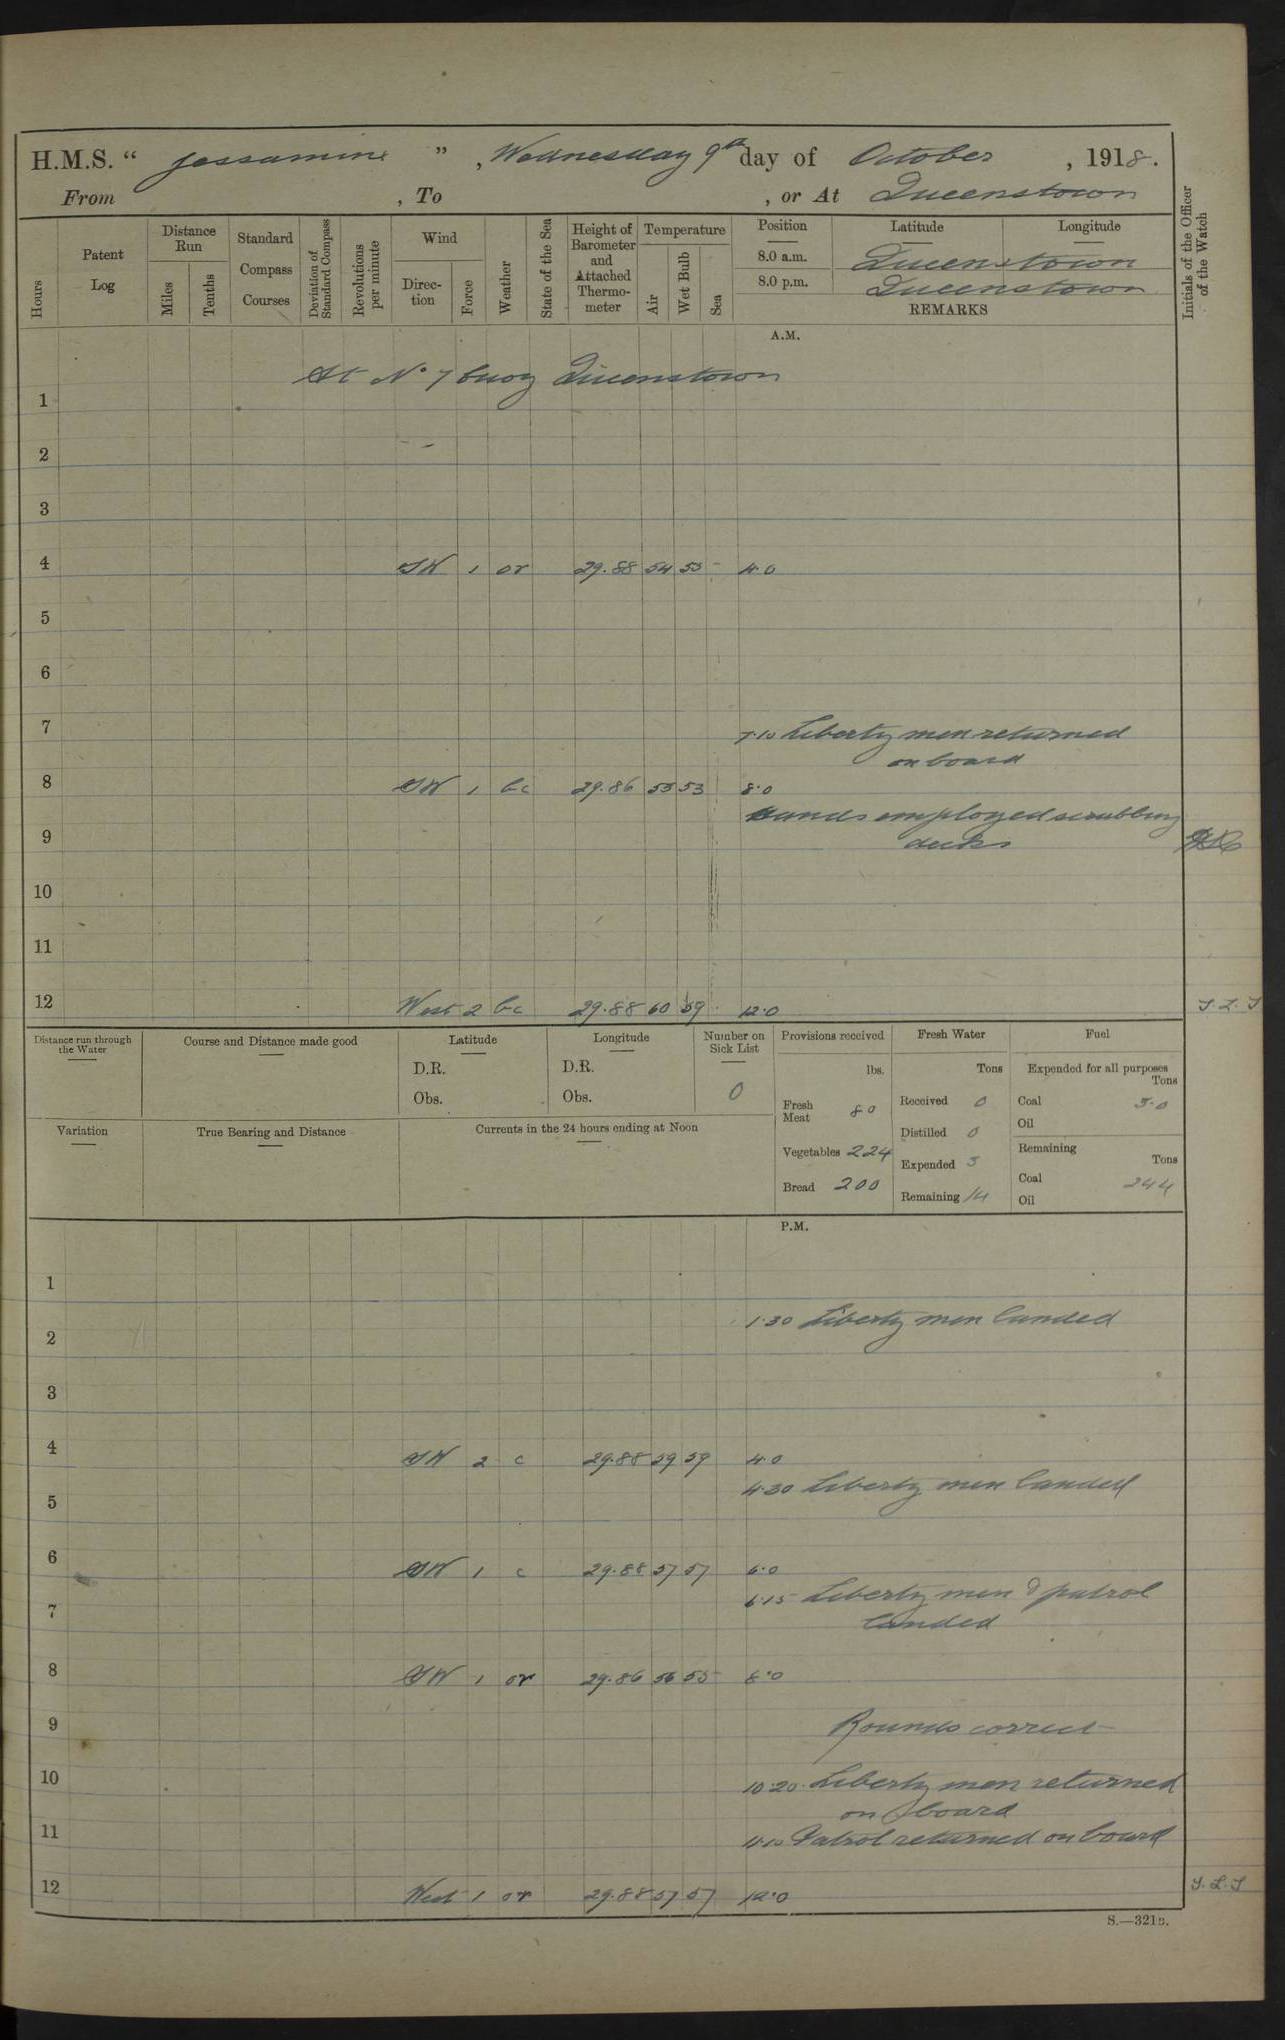 H.M.S. “ Jessamine ” , Wednesday 9th day of October , 1918.
From , To , or At Queenstown
Hours
Patent Log
Distance Run
Miles
Tenths
Standard Compass Courses
Deviation of Standard Compass
Revolutions per minute
Wind
Direction
Force
Weather
State of the Sea
Height of Barometer and Attached Thermometer
Temperature
Air
Wet Bulb
Sea
Position Latitude Longitude
8.0 a.m. Queenstown
8.0 p.m. Queenstown
REMARKS
Initials of the Officer of the Watch
A.M.
At No 7 buoy Queenstown
1
2
3
4 SW 1 or 29.88 54 53 4.0
5
6
7
7.10 Liberty men returned
on board
8 SW 1 bc 29.86 53 53 8.0
Hands employed scrubbing
decks
9
10
11
12 West 2 bc 29.88 60 59 12.0
Distance run through the Water
Course and Distance made good
Latitude
D.R.
Obs.
Longitude
D.R.
Obs.
Number on Sick List
0
Variation
True Bearing and Distance
Currents in the 24 hours ending at Noon
Provisions received
lbs.
Fresh Meat 80
Vegetables 224
Bread 200
Fresh Water
Tons
Received 0
Distilled 0
Expended 3
Remaining 14
Fuel
Expended for all purposes
Tons
Coal 3.0
Oil
Remaining
Tons
Coal 244
Oil
P.M.
1
1.30 Liberty men landed
2
3
4 SW 2 c 29.88 59 59 4.0
4.30 Liberty men landed
5
6 SW 1 c 29.88 57 57 6.0
6.15 Liberty men & patrol
landed
7
8 SW 1 or 29.86 56 55 8.0
9 Rounds correct
10 10.20 Liberty men returned
on board
11 11.10 Patrol returned on board
12 West 1 or 29.88 57 57 12.0
S.—321B.